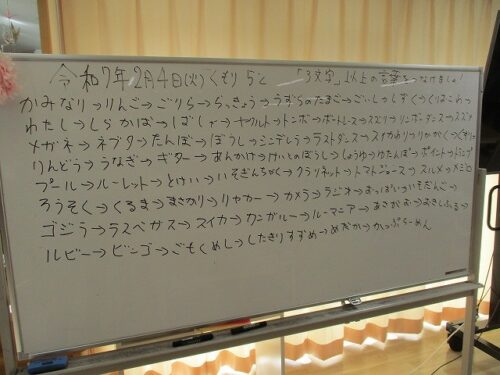 令和7年2月4日(火)くもり 5℃ 「3文字」以上の言葉をつなげましょ!
かみなり→りんご→ごりら→らっきょう→うずらのたまご→ごいし→しずく→くりはこわ→
わたし→しらかば→ばしょ→ヤクルト→トンボ→ボートレース→スピリッ→リンボーダンス→スズメ
メガネ→ネブタ→たんぼ→ぼうし→シンデレラ→ラストダンス→スイカわり→りかがく→くすり
りんどう→うなぎ→ギター→あんかけ→けいとのぼうし→しょうゆ→ゆたんぽ→ポイント→トランプ
プール→ルーレット→とけい→いそぎんちゃく→クラリネット→トマトジュース→スルメ→メロ
ろうそく→くるま→まさかり→リヤカー→カメラ→ラジオ→おっぱい→いそだんご→
ゴジラ→ラスベガス→スイカ→カンガルー→ルーマニア→あさがお→おきしふる→
ルビー→ビンゴ→ごもくめし→したきりすずめ→めだか→かっぷらーめん